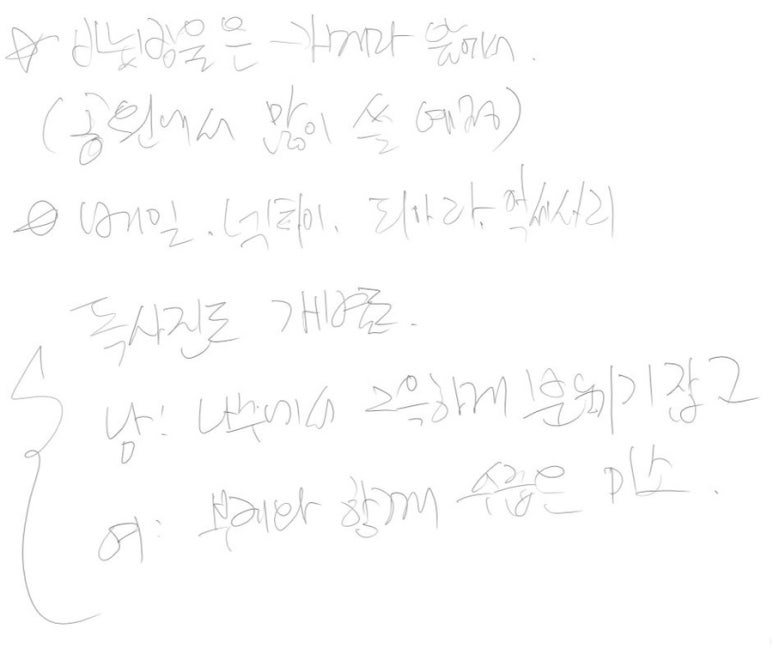 비눗방울은 카메라 앞에서.
(공원에서 많이 쓸 예정)
베일. 넥타이. 티아라. 악세사리
독사진도 개별로.
남: 나무에서 그윽하게 분위기잡고
여: 부케와 함께 수줍은 미소.